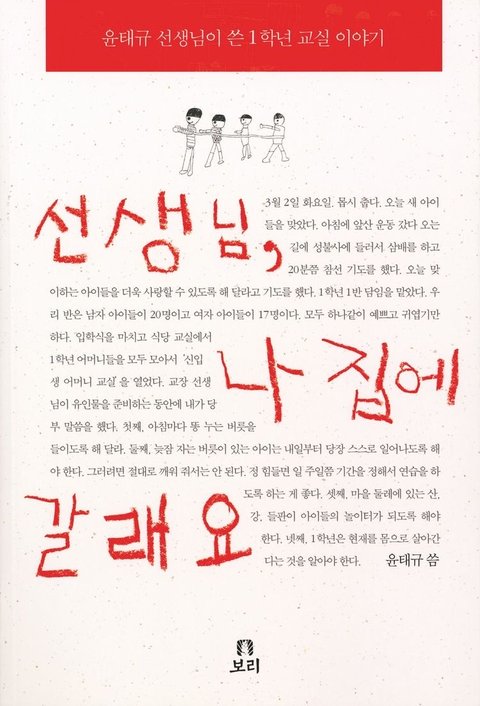 윤태규 선생님이 쓴 1학년 교실 이야기
선생님,
나 집에
갈래요
-3월 2일 화요일. 몹시 춥다. 오늘 새 아이
들을 맞았다. 아침에 앞산 운동 갔다 오는
길에 성불사에 들러서 삼배를 하고
20분쯤 참선 기도를 했다. 오늘 맞
이하는 아이들을 더욱 사랑할 수 있도록 해 달라고 기도를 했다. 1학년 1반 담임을 맡았다. 우
리 반은 남자 아이들이 20명이고 여자 아이들이 17명이다. 모두 하나같이 예쁘고 귀엽기만
하다. 입학식을 마치고 식당 교실에서
1학년 어머니들을 모두 모아서 '신입
생 어머니 교실'을 열었다. 교장 선생
님이 유인물을 준비하는 동안에 내가 당
부 말씀을 했다. 첫째, 아침마다 똥 누는 버릇을
들이도록 해 달라. 둘째, 늦잠 자는 버릇이 있는 아이는 내일부터 당장 스스로 일어나도록 해
야 한다. 그러려면 절대로 깨워 줘서는 안 된다. 정 힘들면 일 주일쯤 기간을 정해서 연습을 하
도록 하는 게 좋다. 셋째, 마을 둘레에 있는 산,
강, 들판이 아이들의 놀이터가 되도록 해야
한다. 넷째, 1학년은 현재를 몸으로 살아간
다는 것을 알아야 한다.
윤태규 씀
보리